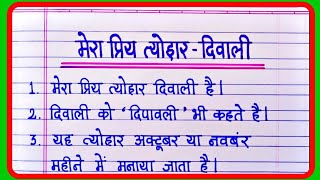 मेरा प्रिय त्योहार - दिवाली
1. मेरा प्रिय त्योहार दिवाली है।
2. दिवाली को ‘दिपावली’ भी कहते है।
3. यह त्योहार अक्टूबर या नवबंर
महीने में मनाया जाता है।